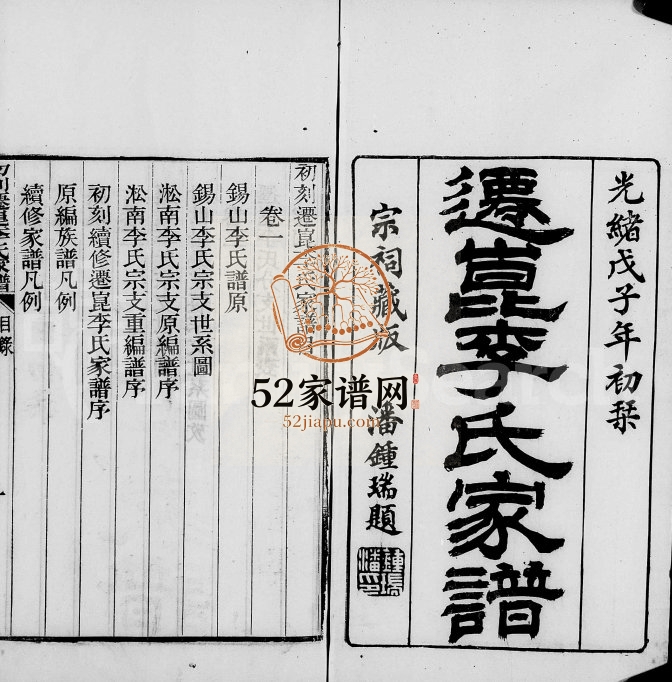 光緒戊子年初栞
遷崑李氏家譜
宗祠藏版
潘鍾瑞題
初刻遷崑李氏家譜
卷一
錫山李氏譜原
錫山李氏宗支世系圖
淞南李氏宗支原編譜序
淞南李氏宗支重編譜序
初刻續修遷崑李氏家譜序
原編族譜凡例
續修家譜凡例
目錄
52家谱网
52jiapu.com